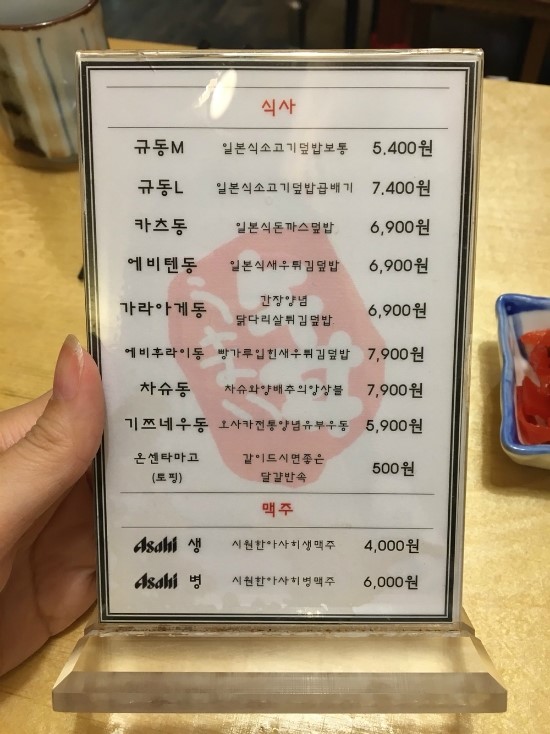 식사
규동M 일본식소고기덮밥보통 5,400원
규동L 일본식소고기덮밥곱배기 7,400원
카츠동 일본식돈까스덮밥 6,900원
에비텐동 일본식새우튀김덮밥 6,900원
가라아게동 간장양념 6,900원
닭다리살튀김덮밥
에비후라이동 빵가루입힌새우튀김덮밥 7,900원
차슈동 차슈와양배추의앙상블 7,900원
기쯔네우동 오사카전통양념유부우동 5,900원
온센타마고 같이드시면좋은 500원
(토핑) 달걀반숙
맥주
Asahi 생 시원한아사히생맥주 4,000원
Asahi 병 시원한아사히병맥주 6,000원